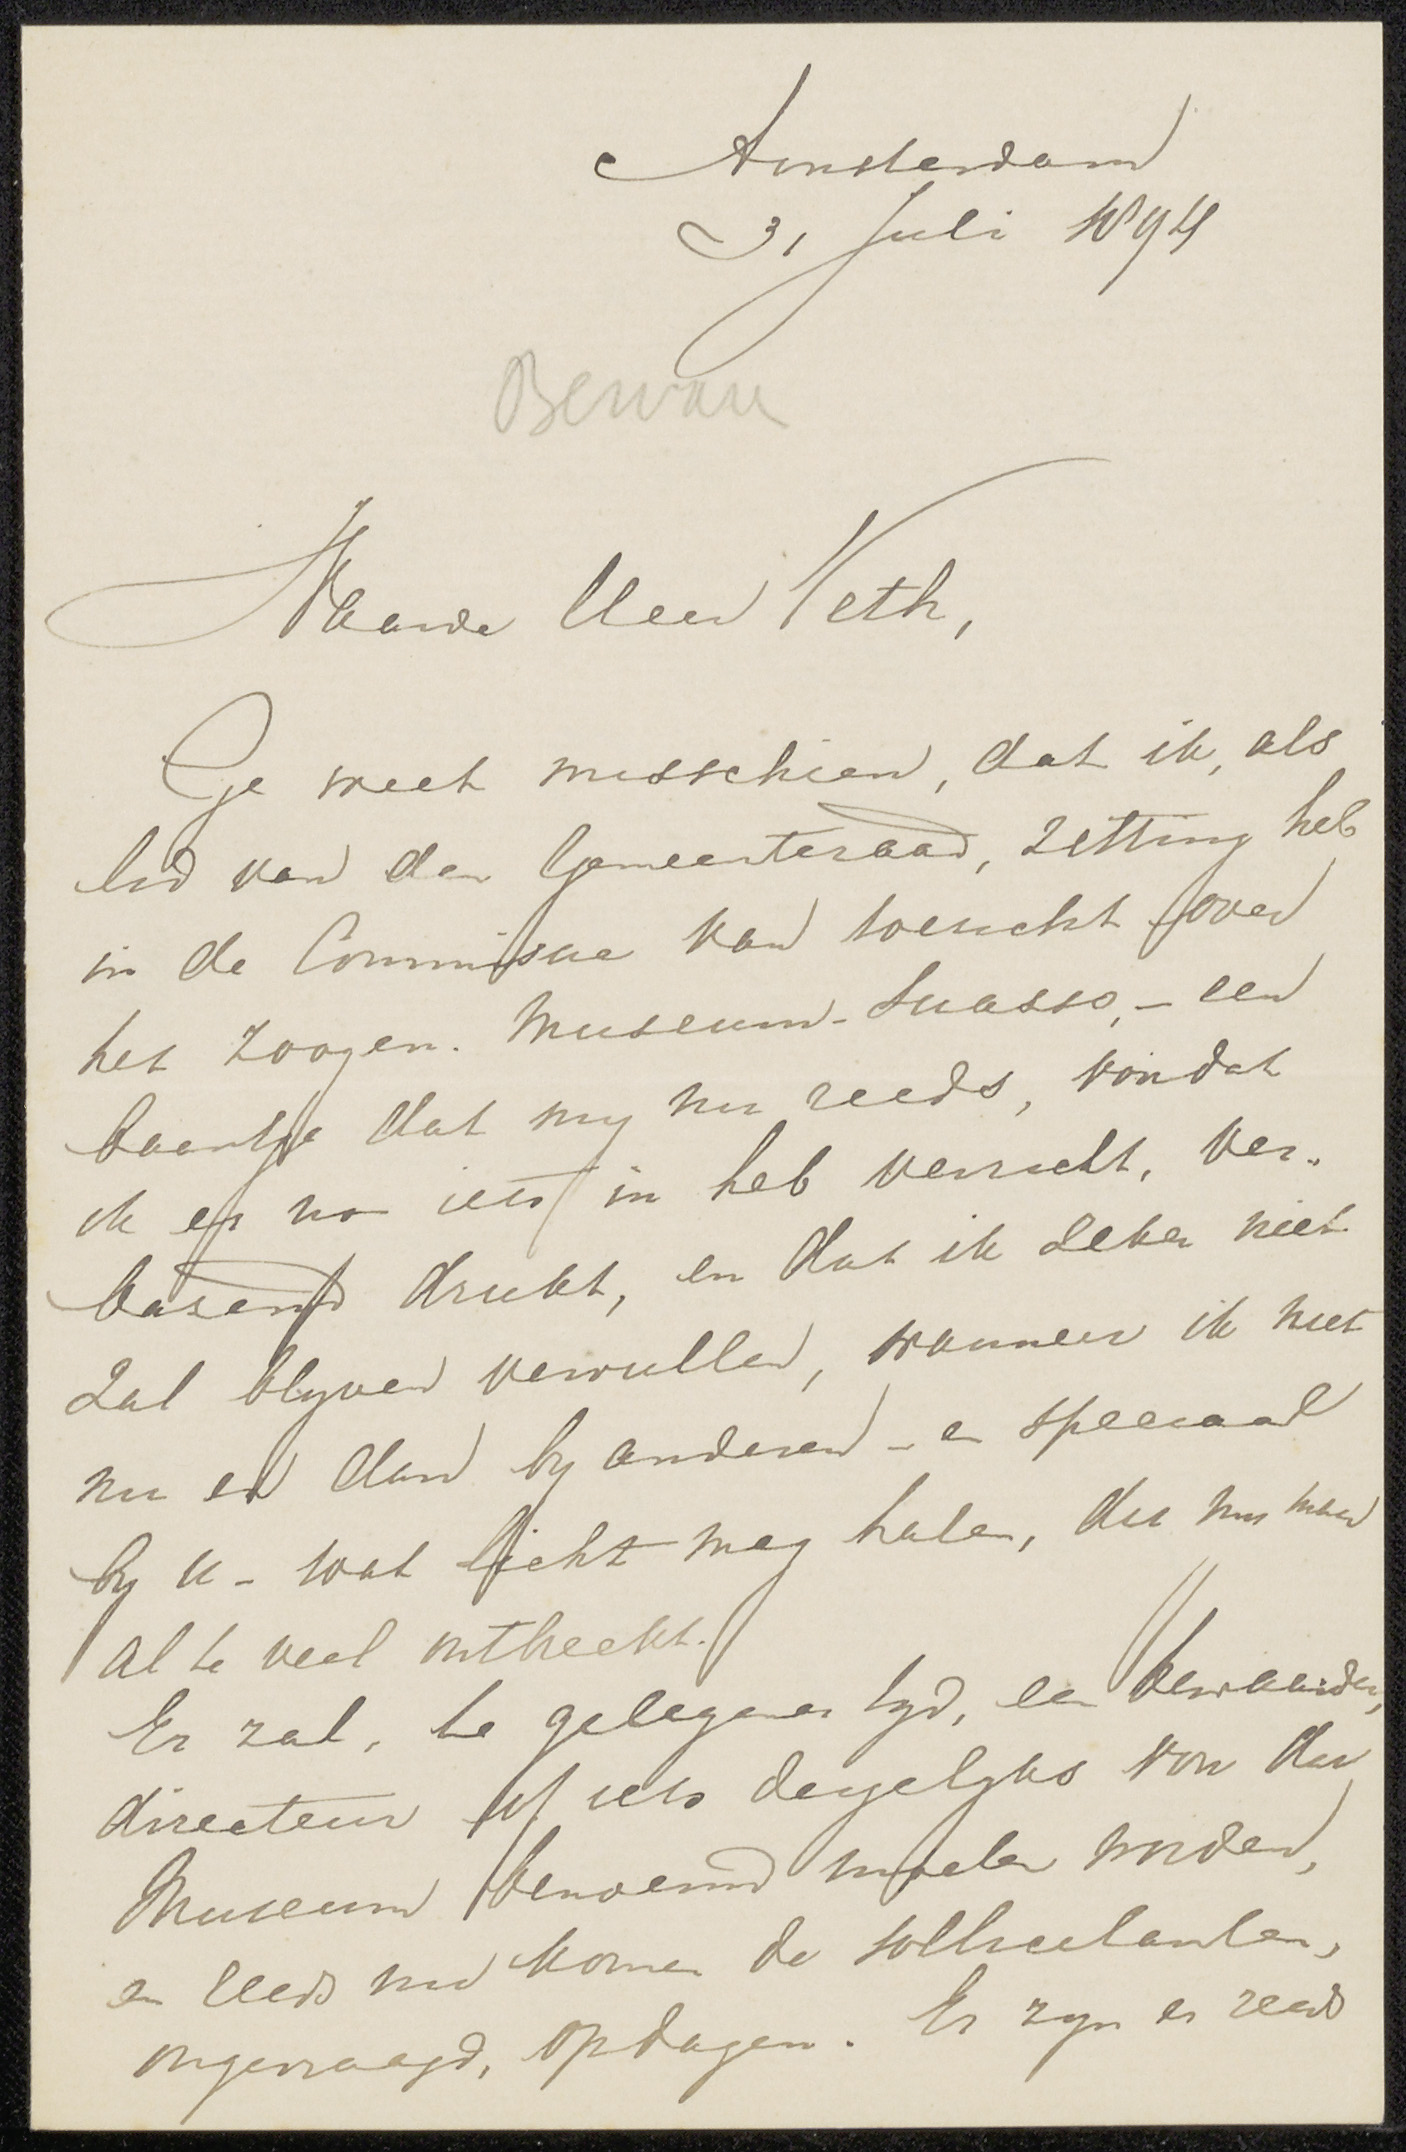 Amsterdam
31 Juli 1894
Beware
Waarde Heer Veth,
Ge weet misschien, dat ik, als
lid van den Gemeenteraad, zitting heb
in de Commissie van toezicht over
het zoogen. Museum-Suasso, – een
baantje dat my nu reeds, vóórdat
ik er no iets in heb verricht, ver-
bazend drukt, en dat ik zeker niet
zal blyven vervullen, wanneer ik niet
nu en dan by anderen – en speciaal
by u – wat licht mag halen, dat my maar
al te veel ontbreekt.
Er zal, te gelegener tyd, een bewaarder,
directeur of iets dergelyks voor dat
Museum benoemd moeten worden,
en reeds nu komen de sollicitanten,
ongevraagd, opdagen. Er zyn er reeds